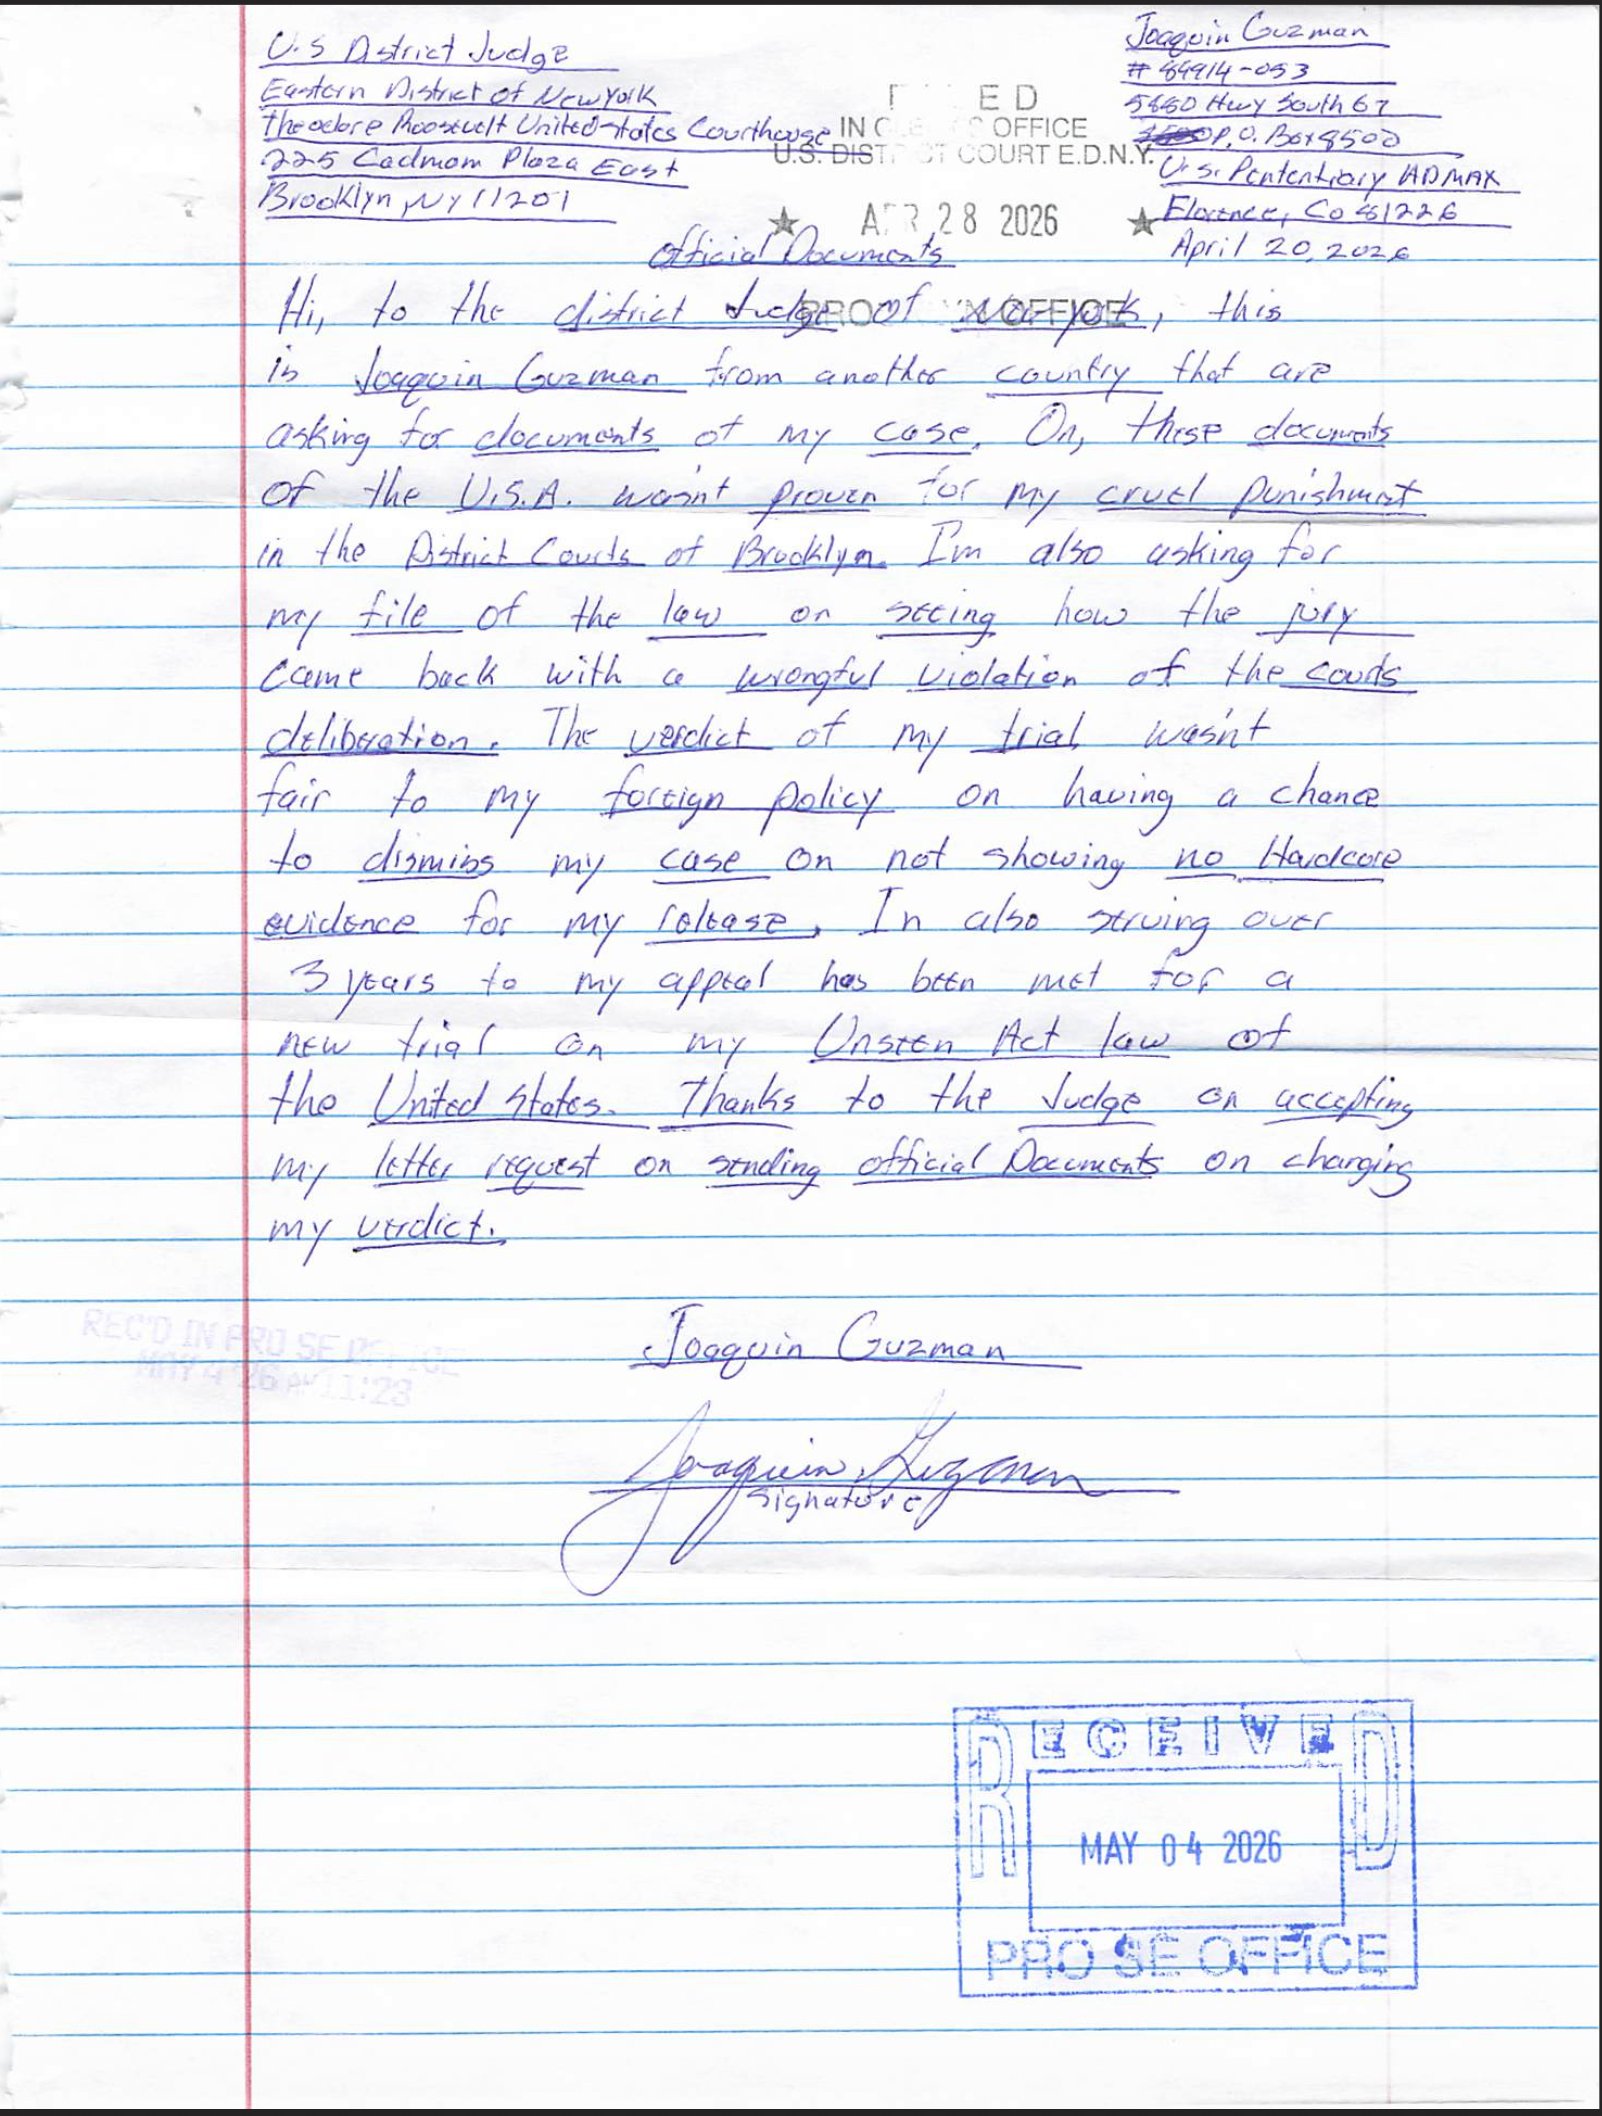 U.S District Judge
Eastern District of New York
Theodore Roosevelt United States Courthouse
225 Cadmam Plaza East
Brooklyn, NY 11201
Joaquin Guzman
# 89914-053
5880 Hwy South 67
P.O. Box 8500
U.S. Pententiary ADMAX
Florence, Co 81226
April 20, 2026
ED
IN C S OFFICE
U.S. DIST CT COURT E.D.N.Y.
★ APR 28 2026 ★
OFFICE
Official Documents
Hi, to the district Judge of New York, this
is Joaquin Guzman from another country that are
asking for documents of my case. On, these documents
of the U.S.A. wasn't proven for my cruel punishment
in the District Courts of Brooklyn. I'm also asking for
my file of the law on seeing how the jury
came back with a wrongful violation of the courts
deliberation. The verdict of my trial wasn't
fair to my foreign policy on having a chance
to dismiss my case on not showing no Hardcore
evidence for my release. In also serving over
3 years to my appeal has been met for a
new trial on my Unseen Act law of
the United States. Thanks to the Judge on accepting
my letter request on sending official Documents on changing
my verdict.
Joaquin Guzman
Joaquin Guzman
Signature
REC'D IN PRO SE OFFICE
MAY 4 '26 AM 11:23
RECEIVED
MAY 04 2026
PRO SE OFFICE